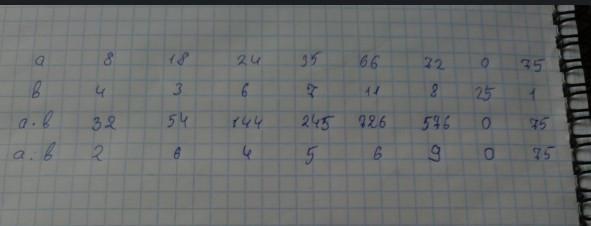 a 8 18 24 35 66 72 0 75
b 4 3 6 7 11 8 25 1
a·b 32 54 144 245 726 576 0 75
a:b 2 6 4 5 6 9 0 75